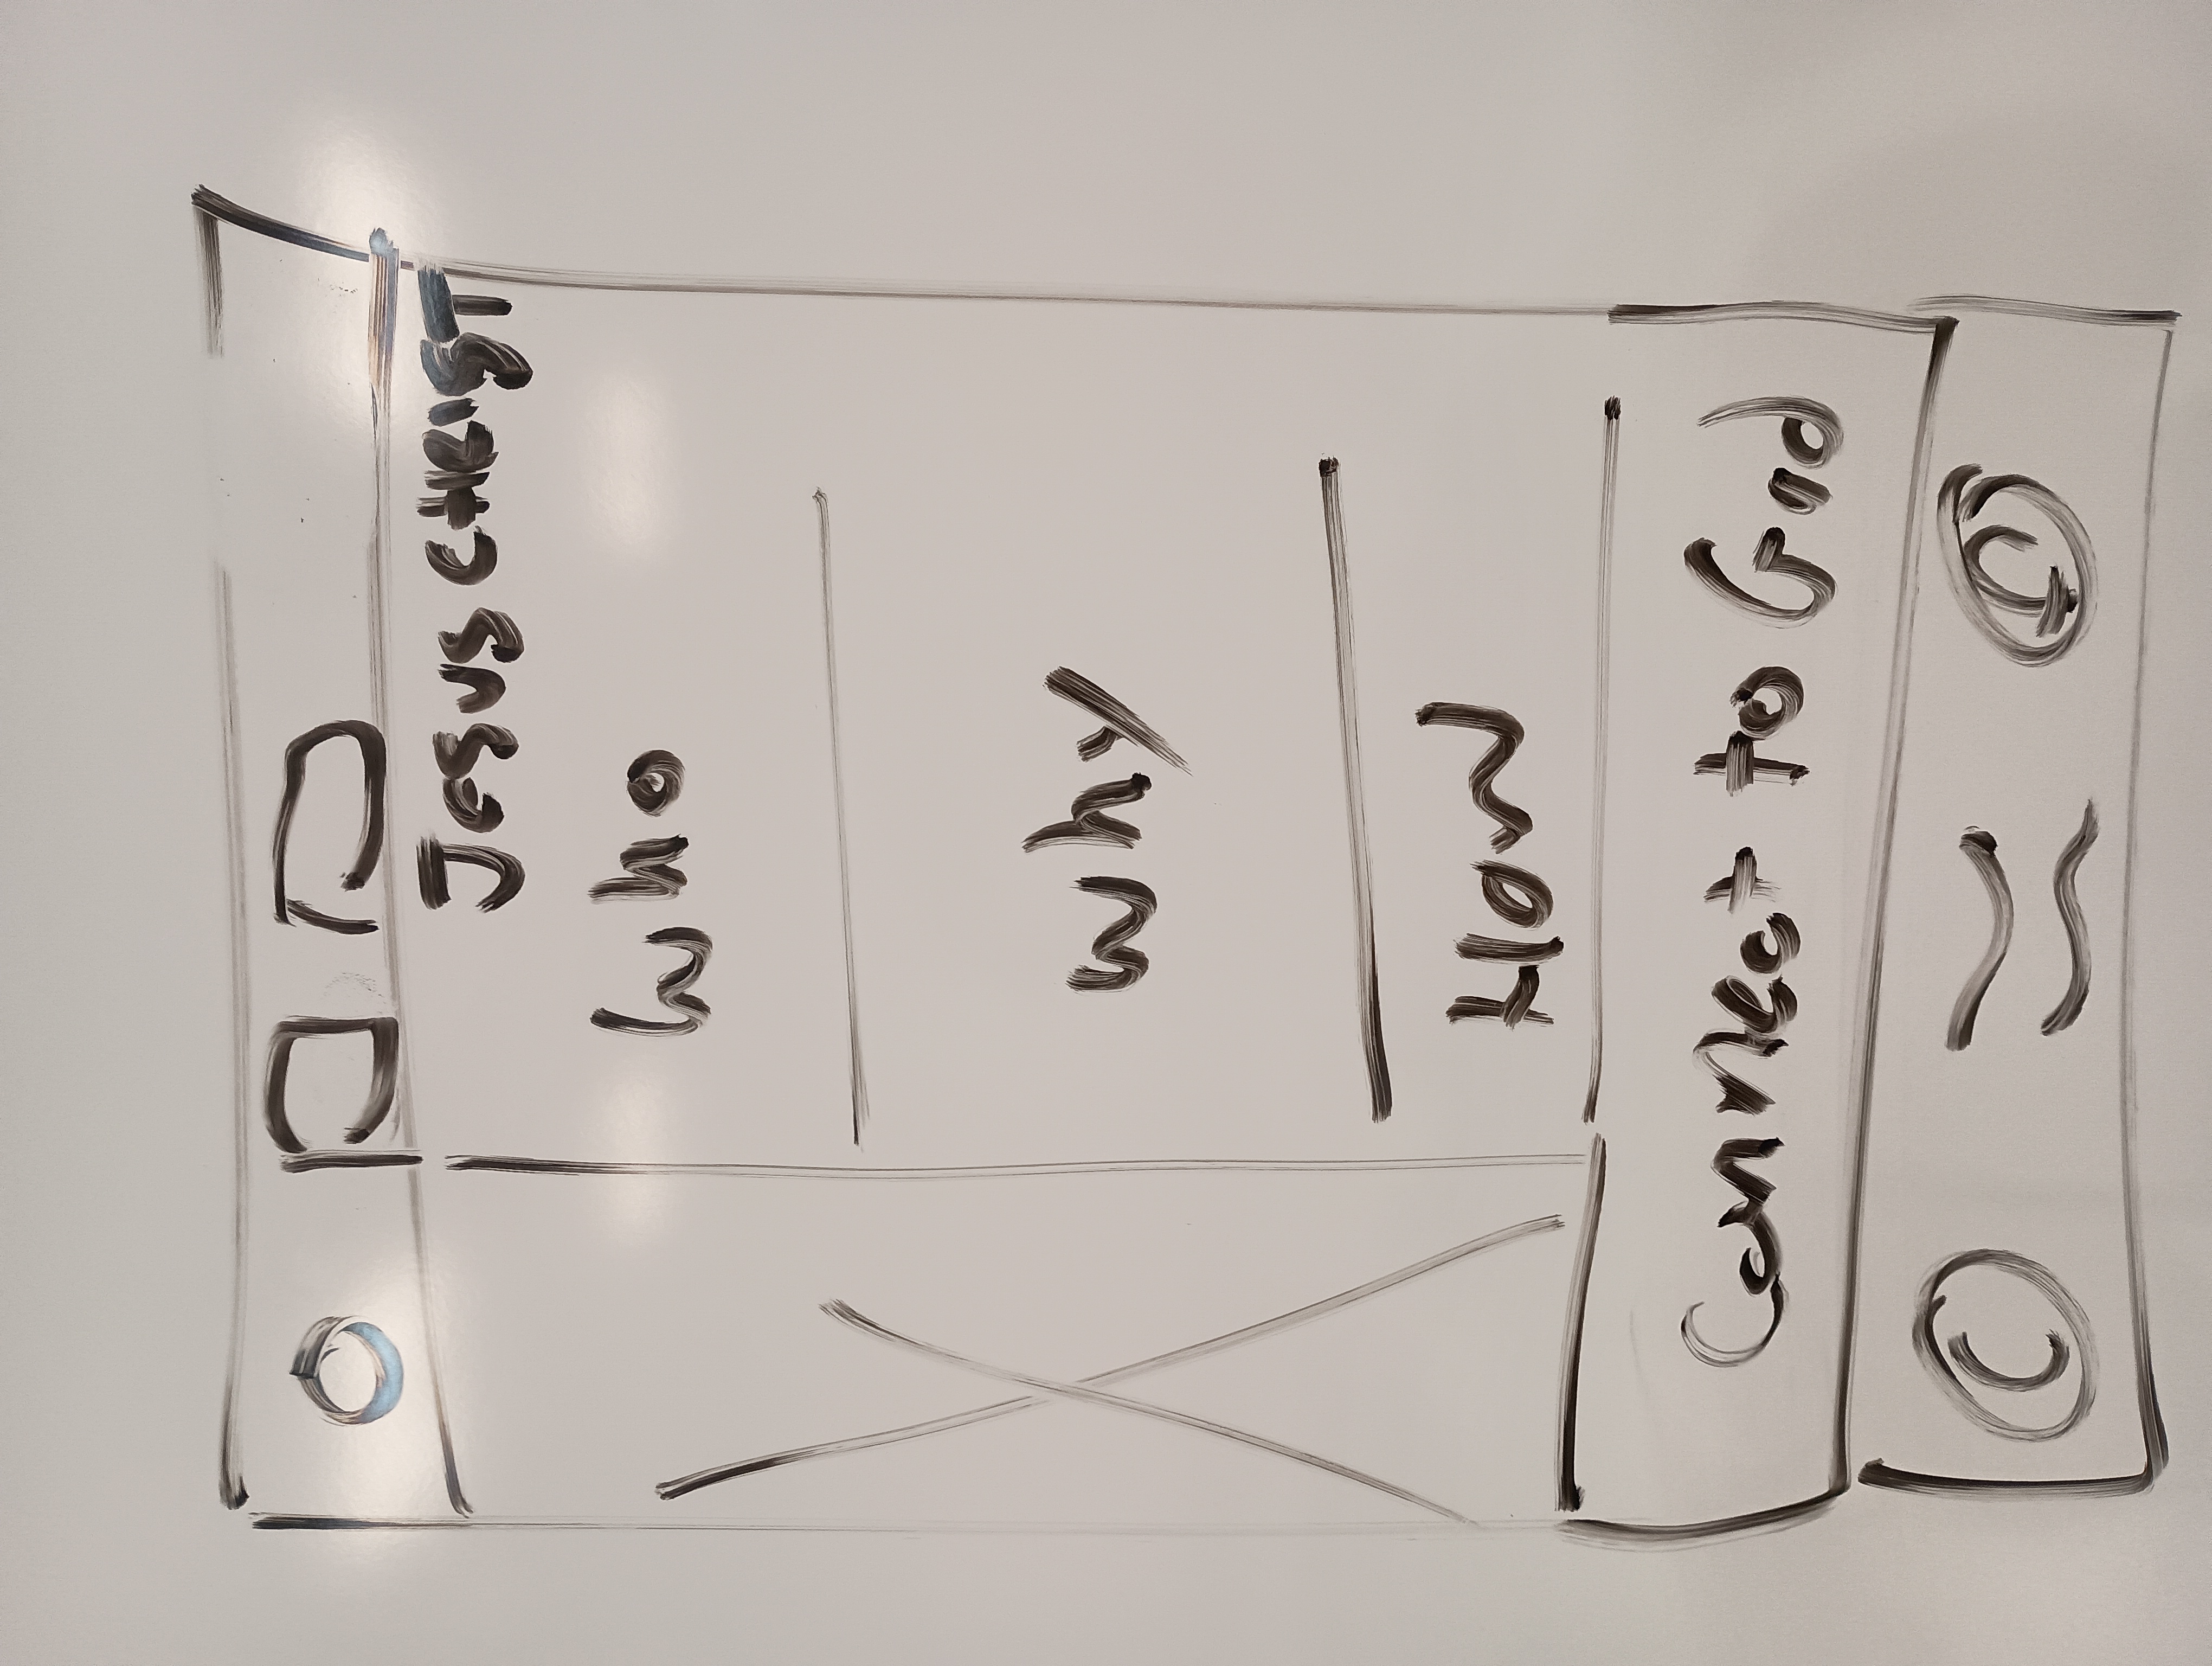 Jesus CHRIST
Who
why
How
Connect to God
C